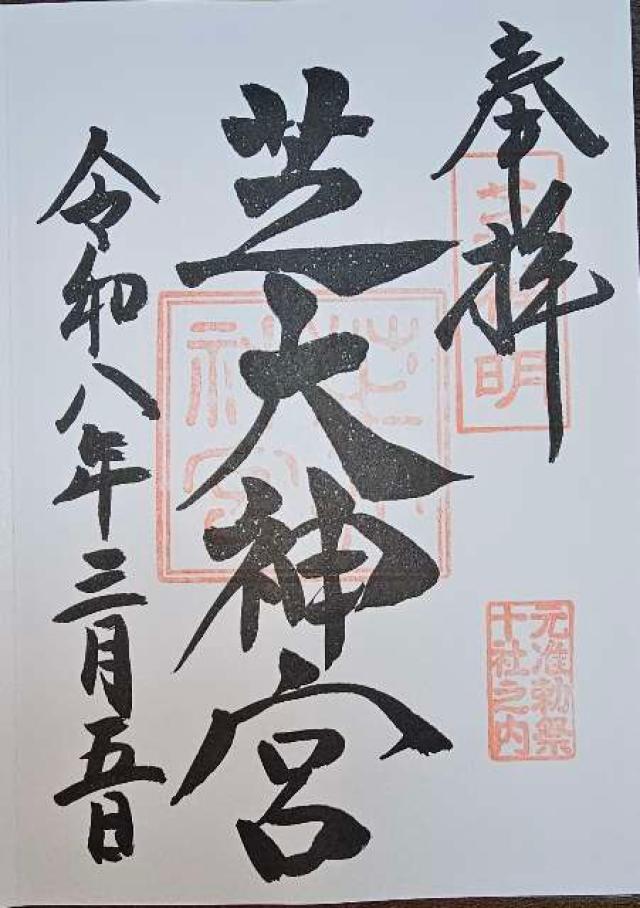 奉拝
芝大神宮
元准勅祭
十社之内
令和八年三月五日